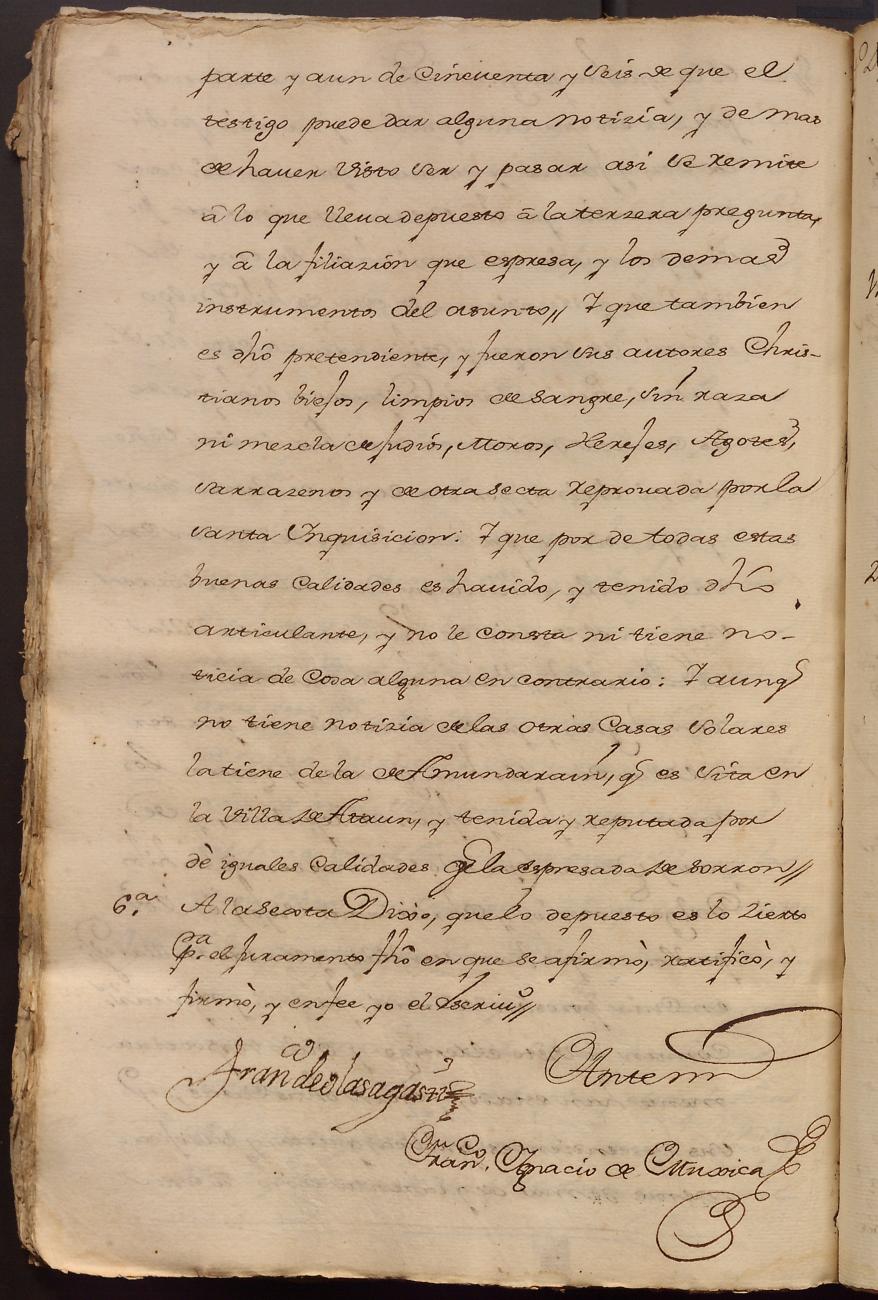 parte y aun de Cincuenta y seis de que el
testigo puede dar alguna notizia, y de mas
de hauer visto ser y pasar asi se remite
â lo que lleua depuesto â la terzera pregunta,
y â la filiazión que espresa, y los demas
instrumentos del asunto,, Y que tambien
es dhô pretendiente, y fueron sus autores Chris-
tianos biejos, limpios de sangre, sin raza
ni mezcla de judiós, Moros, Herejes, Agotes,
sarrazenos y de otra secta reprouada por la
santa Ynquisicion: Y que por de todas estas
buenas Calidades es hauido, y tenido dho
articulante, y no le consta ni tiene no-
ticia de Cosa alguna en contrario: Y aunq
no tiene notizia de las otras Casas Solares
la tiene de la de Amundarain, q es sita en
la Villa de Ataun, y tenida y reputada por
dè iguales Calidades q la espresada de borron,,
6.a A la Sexta Dixo, que lo depuesto es lo zierto
p.a el juramento fhô en que se afirmò, ratificò, y
firmò, y en fee yo el Sscriuo,,
Fran.co de olasagasti
Ante mi
Fran.co Ygnacio de Muxica